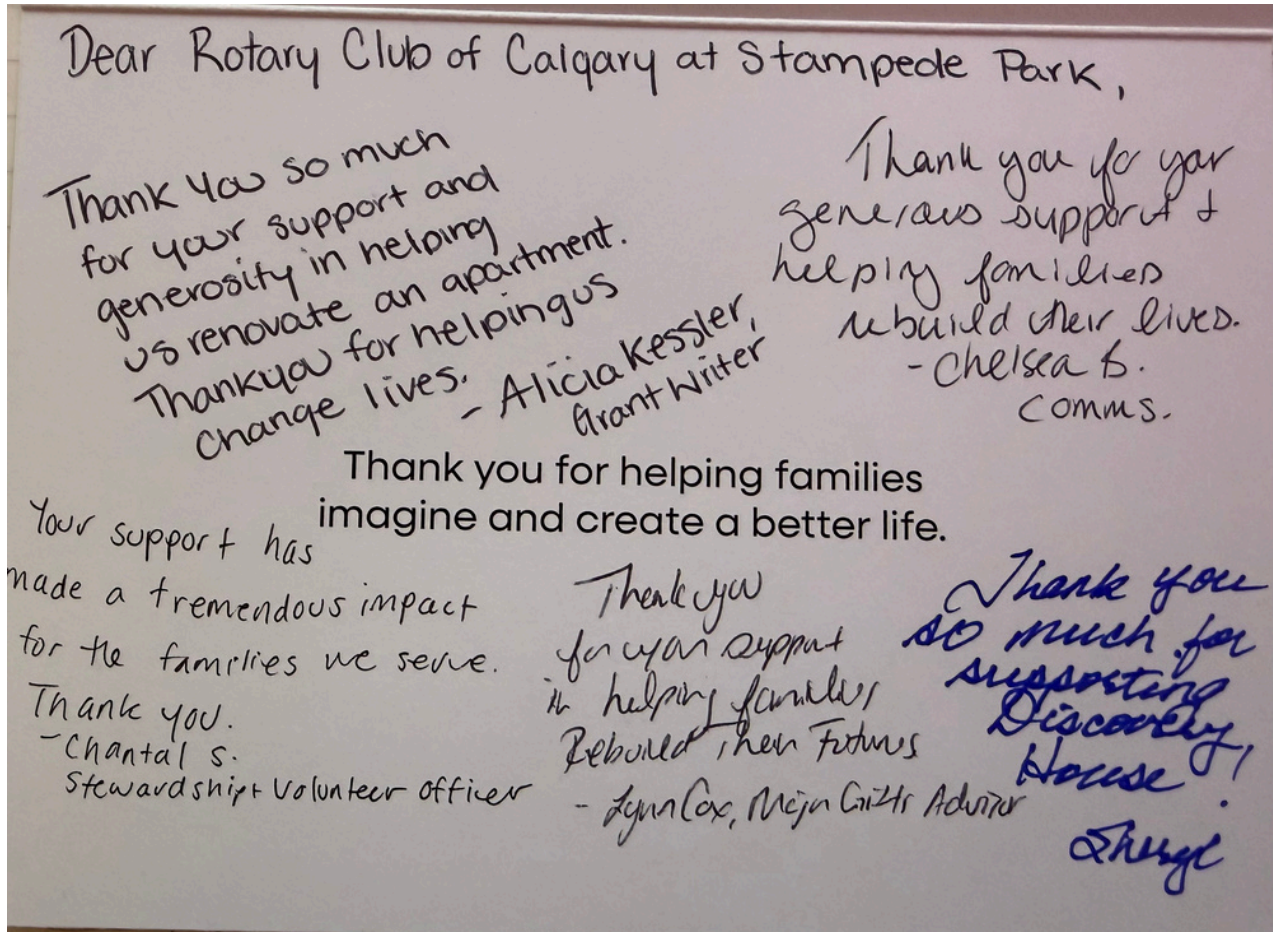 Dear Rotary Club of Calgary at Stampede Park,
Thank you so much
for your support and
generosity in helping
us renovate an apartment.
Thankyou for helping us
change lives.
- Alicia Kessler,
Grant Writer
Thank you fo your
generous support &
helping families
rebuild their lives.
- Chelsea B.
Comms.
Thank you for helping families
imagine and create a better life.
Your support has
made a tremendous impact
for the families we serve.
Thank you.
- Chantal S.
Stewardship + Volunteer Officer
Thank you
for your support
in helping families
Rebuild Their Futures
- Lynn Cox, Major Gifts Advisor
Thank you
so much for
supporting
Discovery
House!
Sheryl